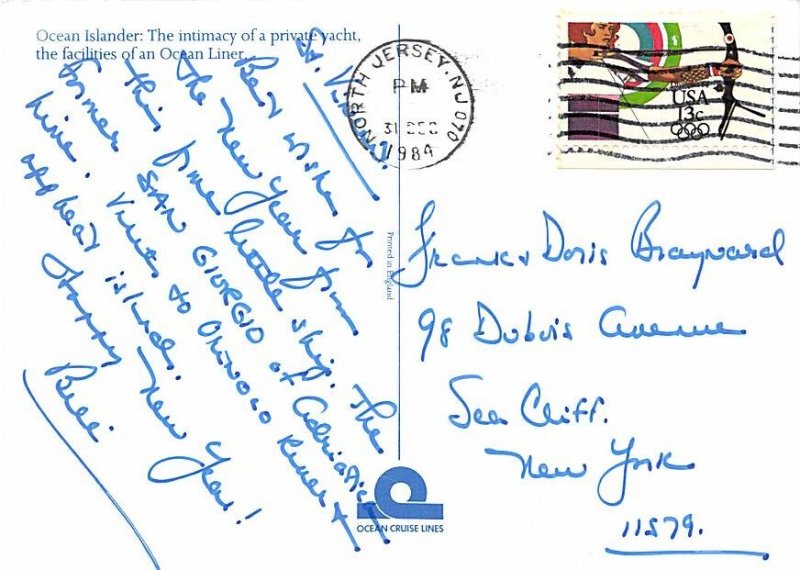 Ocean Islander: The intimacy of a private yacht,
the facilities of an Ocean Liner.
St. Vincent
Best wishes for
the New Year from
this fine little ship. The
former SAN GIORGIO of Adriatica
Line. Visits to Orinoco River +
offbeat islands.
Happy New Year!
Bill
Printed in England
OCEAN CRUISE LINES
NORTH JERSEY, NJ 070
PM
31 DEC
1984
USA
13c
Frank + Doris Braynard
98 Dubois Avenue
Sea Cliff.
New York
11579.